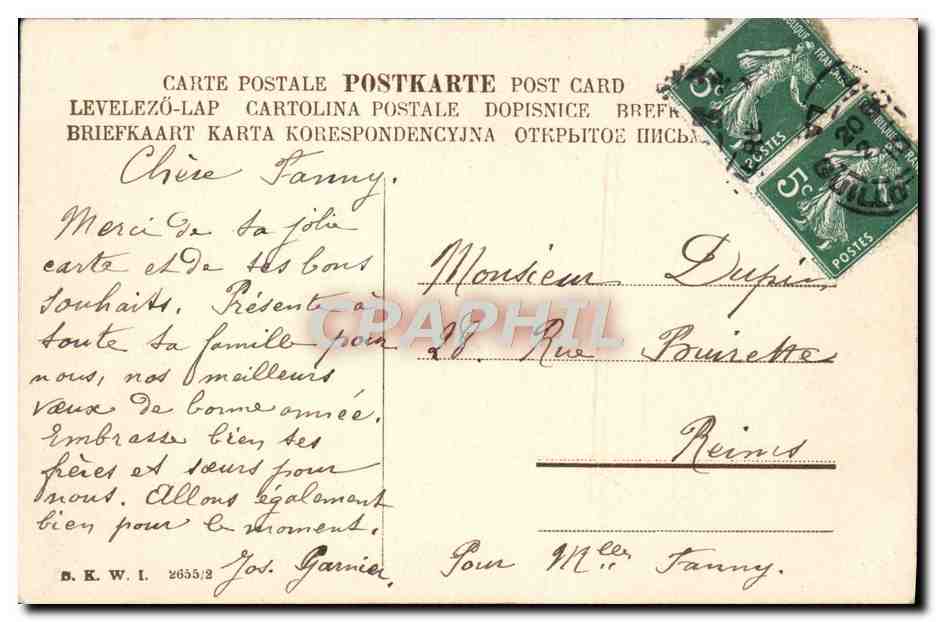 CARTE POSTALE POSTKARTE POST CARD
LEVELEZŐ-LAP CARTOLINA POSTALE DOPISNICE BREFK
BRIEFKAART KARTA KORESPONDENCYJNA ОТКРЫТОЕ ПИСЬМ
Chère Fanny.
Merci de ta jolie
carte et de tes bons
souhaits. Présente à
toute ta famille pour
nous, nos meilleurs
vœux de bonne année.
Embrasse bien tes
frères et sœurs pour
nous. Allons également
bien pour le moment.
Jos. Garnier.
B. K. W. I. 2655/2
Monsieur Dupin
28. Rue Buirette
Reims
Pour Mlle Fanny.
5c POSTES
5c POSTES
CPAPHIL